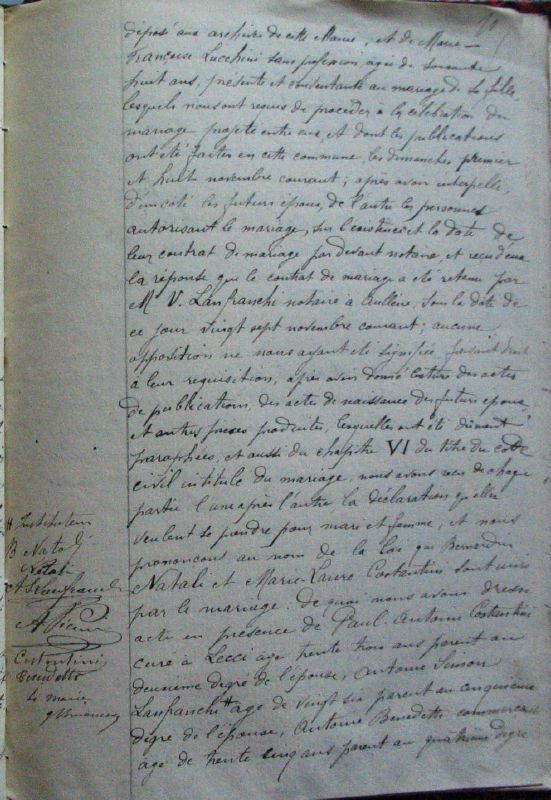 déposé aux archives de cette Mairie, et de Marie
Françoise Lucchini sans profession, agée de soixante
huit ans, présente et consentante au mariage de sa fille,
lesquels nous ont requis de procéder à la célébration du
mariage projeté entre eux et dont les publications
ont été faites en cette commune, les dimanches premier
et huit novembre courant; après avoir interpellé,
d'un coté les futurs époux, de l'autre les personnes
autorisant le mariage, sur l'existence et la date de
leur contrat de mariage par devant notaire, et reçu d'eux
la réponse que le contrat de mariage a été retenu par
M V. Lanfranchi notaire à Aullène, sous la date de
ce jour vingt sept novembre courant; aucune
opposition ne nous ayant été signifiée, faisant droit
à leur requisition, après avoir donné lecture des actes
de publications, des actes de naissances des futurs époux,
et autres pièces produites, lesquelles ont été dûment
paraphées, et aussi du chapitre VI du titre du code
civil intitulé du mariage, nous avons reçu de chaque
partie l'une après l'autre la déclaration qu'elles
veulent se prendre pour mari et femme, et nous
prononçons au nom de la Loi que Bernardin
Natali et Marie-Laure Costantini sont unis
par le mariage. de quoi nous avons dressé
acte en présence de Paul Antoine Costantini
curé à Lecci agé trente trois ans parent au
deuxième degré de l'épouse, Antoine Simon
Lanfranchi # agé de vingt six parent au cinquième
degré de l'épouse, Antoine Benedetti commerçant
agé de trente cinq ans parent au quatrième degré
# Instituteur
B Natali
A S Lanfranchi
Costantini
Benedetti
Le maire